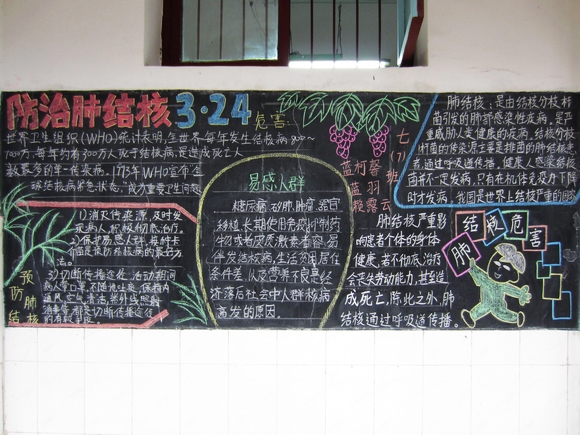 防治肺结核 3·24
危害
世界卫生组织(WHO)统计表明,全世界每年发生结核病800~
700万,每年约有300万人死于结核病,是造成死亡人
数最多的单一传染病。1993年WHO宣布全
球结核病紧急状态,成为重要卫生问题
预防肺结核
1)消灭传染源,及时发
现病人,积极彻底治疗。
2)保护易感人群,
3)切断传播途径,活动期间
病人戴口罩,不随地吐痰,保持室内
通风,
易感人群
糖尿病、矽肺、肿瘤、器官
移植、长期使用免疫抑制药
物或者皮质激素者容易
伴发结核病,生活贫困居住
条件差,以及营养不良是经
济落后社会中人群核病
高发的原因。
七(八)班
蓝柯馨
蓝羽
赖露云
肺结核,是由结核分枝杆
菌引发的肺部感染性疾病,是严
重威胁人类健康的疾病。结核分枝
杆菌的传染源主要是排菌的肺结核患
者,通过呼吸道传播。健康人感染结核
菌并不一定发病,只有在机体免疫力下降
时才发病。我国是世界上结核严重的国家
肺结核严重影
响患者个体的身体
健康,若不彻底治疗
会丧失劳动能力,甚至造
成死亡,除此之外,肺
结核通过呼吸道传播。
肺结核危害